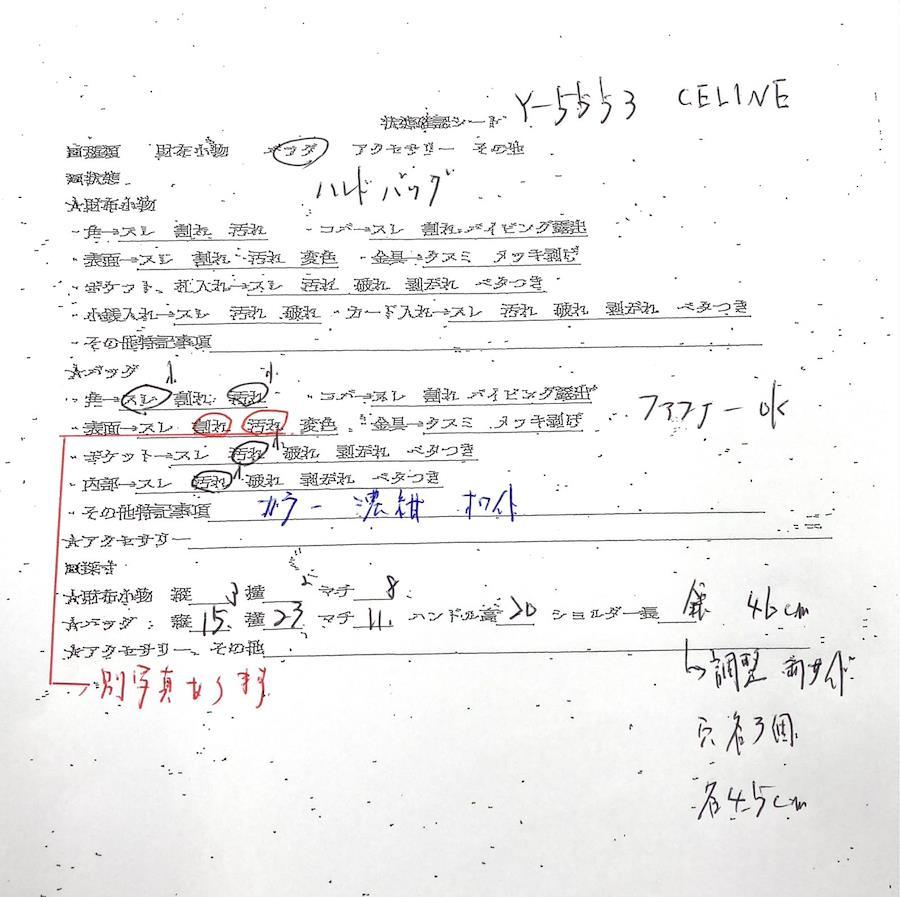 Y-5553 CELINE
状態確認シート
■種類 財布小物 バッグ アクセサリー その他
■状態
ハンドバッグ
★財布小物
・角→スレ 割れ 汚れ ・コバ→スレ 割れ パイピング露出
・表面→スレ 割れ 汚れ 変色 ・金具→クスミ メッキ剥げ
・ポケット、札入れ→スレ 汚れ 破れ 剥がれ ベタつき
・小銭入れ→スレ 汚れ 破れ ・カード入れ→スレ 汚れ 破れ 剥がれ ベタつき
・その他特記事項
★バッグ
小 小
・角→スレ 割れ 汚れ ・コバ→スレ 割れ パイピング露出
ファスナー ok
・表面→スレ 割れ 汚れ 変色 ・金具→クスミ メッキ剥げ
・ポケット→スレ 汚れ 小 破れ 剥がれ ベタつき
・内部→スレ 汚れ 小 破れ 剥がれ ベタつき
・その他特記事項 カラー 濃紺 ホワイト
★アクセサリー
■採寸
★財布小物 縦 3 横 マチ 8
★バッグ 縦 15 横 23 マチ 11 ハンドル高 20 ショルダー長 46cm
★アクセサリー、その他
→別写真あります
↳調整 両サイド
穴各3個
各4.5cm